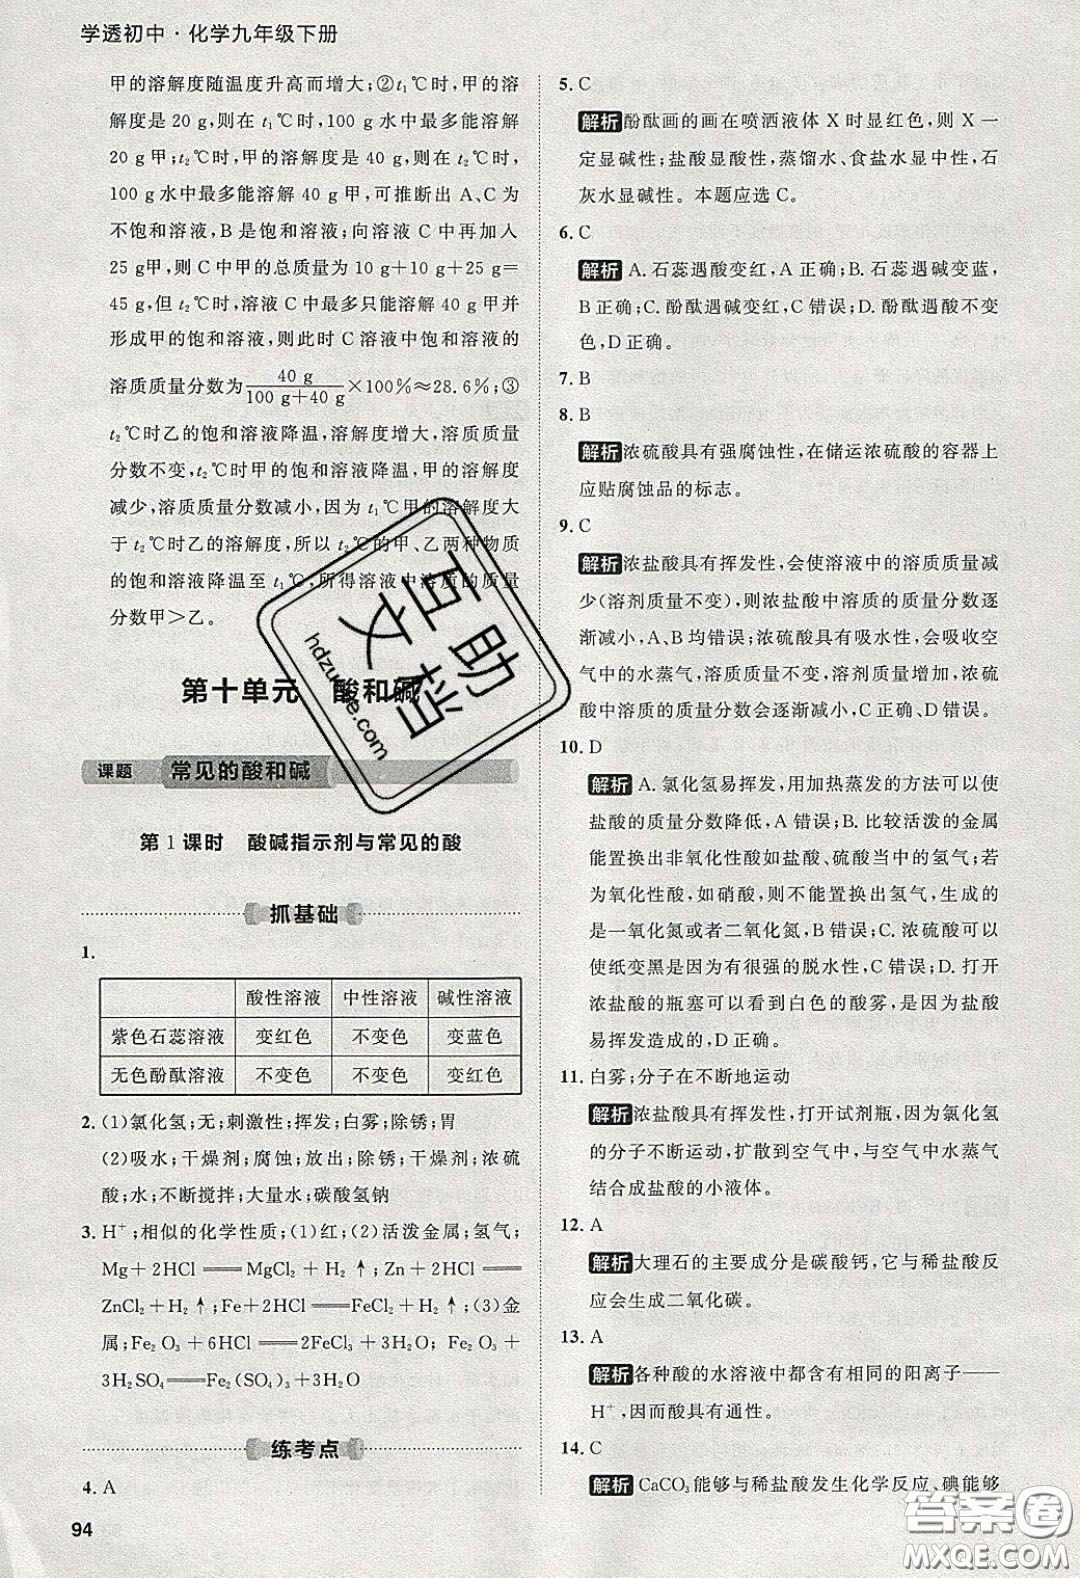 学透初中·化学九年级下册
甲的溶解度随温度升高而增大;②t₁℃时,甲的溶
解度是 20 g,则在 t₁℃时,100 g 水中最多能溶解
20 g 甲;t₂℃时的溶解度是 40 g,则在 t₂℃时,
100 g 水中最多能溶解 40 g 甲,可推断出 A、C 为
不饱和溶液,B 是饱和溶液;向溶液 C 中再加入
25 g甲,则 C 中甲的总质量为 10 g+10 g+25 g=
45 g,但 t₂℃时,溶液 C 中最多只能溶解 40 g 甲并
形成甲的饱和溶液,则此时 C 溶液中饱和溶液的
溶质质量分数为 40 g/(100 g+40 g)×100%≈28.6%;③
t₂℃时乙的饱和溶液降温,溶解度增大,溶质质量
分数不变,t₂℃时甲的饱和溶液降温,甲的溶解度
减少,溶质质量分数减小,因为 t₁℃甲的溶解度大
于 t₂℃时乙的溶解度,所以 t₂℃的甲、乙两种物质
的饱和溶液降温至 t₁℃,所得溶液中溶质的质量
分数甲>乙。
第十单元 酸和碱
课题 常见的酸和碱
第 1 课时 酸碱指示剂与常见的酸
抓基础
1.
酸性溶液 中性溶液 碱性溶液
紫色石蕊溶液 变红色 不变色 变蓝色
无色酚酞溶液 不变色 不变色 变红色
2. (1)氯化氢;无;刺激性;挥发;白雾;除锈;胃
(2)吸水;干燥剂;腐蚀;放出;除锈;干燥剂;浓硫
酸;水;不断搅拌;大量水;碳酸氢钠
3. H⁺;相似的化学性质;(1)红;(2)活泼金属;氢气;
Mg+2HCl══MgCl₂+H₂↑;Zn+2HCl══
ZnCl₂+H₂↑;Fe+2HCl══FeCl₂+H₂↑;(3)金
属;Fe₂O₃+6HCl══2FeCl₃+3H₂O;Fe₂O₃+
3H₂SO₄══Fe₂(SO₄)₃+3H₂O
练考点
4. A
94
5. C
解析 酚酞画的画在喷洒液体 X 时显红色,则 X 一
定显碱性;盐酸显酸性,蒸馏水、食盐水显中性,石
灰水显碱性。本题应选 C。
6. C
解析 A. 石蕊遇酸变红,A 正确;B. 石蕊遇碱变蓝,
B 正确;C. 酚酞遇碱变红,C 错误;D. 酚酞遇酸不变
色,D 正确。
7. B
8. B
解析 浓硫酸具有强腐蚀性,在储运浓硫酸的容器上
应贴腐蚀品的标志。
9. C
解析 浓盐酸具有挥发性,会使溶液中的溶质质量减
少(溶剂质量不变),则浓盐酸中溶质的质量分数逐
渐减小,A、B 均错误;浓硫酸具有吸水性,会吸收空
气中的水蒸气,溶质质量不变,溶剂质量增加,浓硫
酸中溶质的质量分数会逐渐减小,C 正确、D 错误。
10. D
解析 A. 氯化氢易挥发,用加热蒸发的方法可以使
盐酸的质量分数降低,A 错误;B. 比较活泼的金属
能置换出非氧化性酸如盐酸、硫酸当中的氢气;若
为氧化性酸,如硝酸,则不能置换出氢气,生成的
是一氧化氮或者二氧化氮,B 错误;C. 浓硫酸可以
使纸变黑是因为有很强的脱水性,C 错误;D. 打开
浓盐酸的瓶塞可以看到白色的酸雾,是因为盐酸
易挥发而形成的。D 正确。
11. 白雾;分子在不断地运动
解析 浓盐酸具有挥发性,打开试剂瓶,因为氯化氢
的分子不断运动,扩散到空气中,与空气中水蒸气
结合成盐酸的小液体。
12. A
解析 大理石的主要成分是碳酸钙,它与稀盐酸反
应会生成二氧化碳。
13. A
解析 各种酸的水溶液中都含有相同的阳离子——
H⁺,因而酸具有通性。
14. C
解析 CaCO₃能够与稀盐酸发生化学反应、碘能够
互助文档
hdzuoye.com
答案圈
MXQE.COM